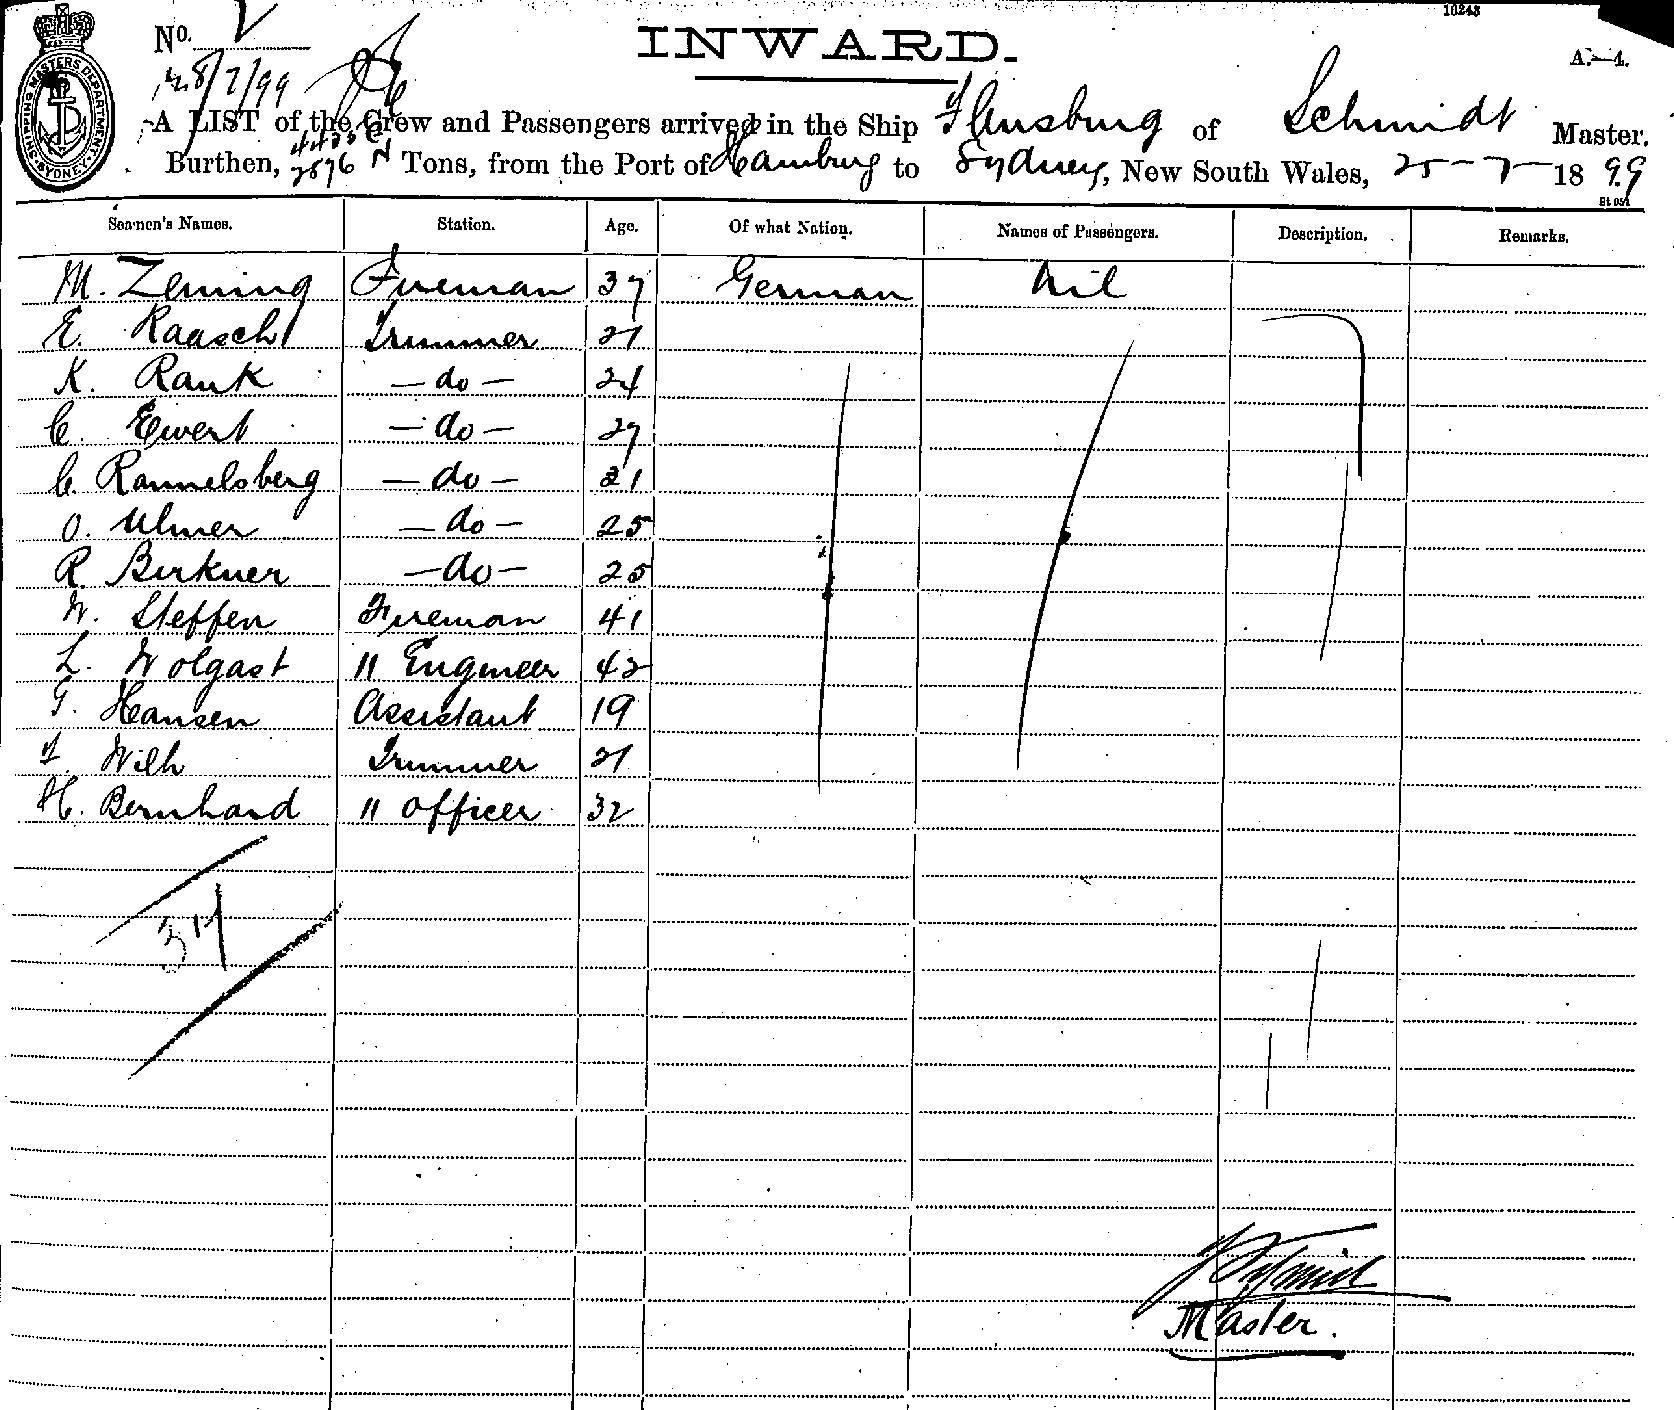 10243
No.
INWARD.
A.—4.
28/7/99
SHIPPING MASTERS DEPARTMENT SYDNEY
A LIST of the Crew and Passengers arrived in the Ship Flensburg of Schmidt Master,
Burthen, 2876 N Tons, from the Port of Hamburg to Sydney, New South Wales, 25 - 7 - 1899
Seamen's Names. Station. Age. Of what Nation. Names of Passengers. Description. Remarks.
M. Zeming Fireman 37 German Nil
E. Raasch Trimmer 21
K. Rank — do — 24
C. Ewert — do — 27
C. Rammelsberg — do — 21
O. Ulmer — do — 25
R. Birkner — do — 25
W. Steffen Fireman 41
L. Wolgast " Engineer 42
G. Hansen Assistant 19
Wilh Trimmer 21
H. Bernhard " Officer 32
Master.